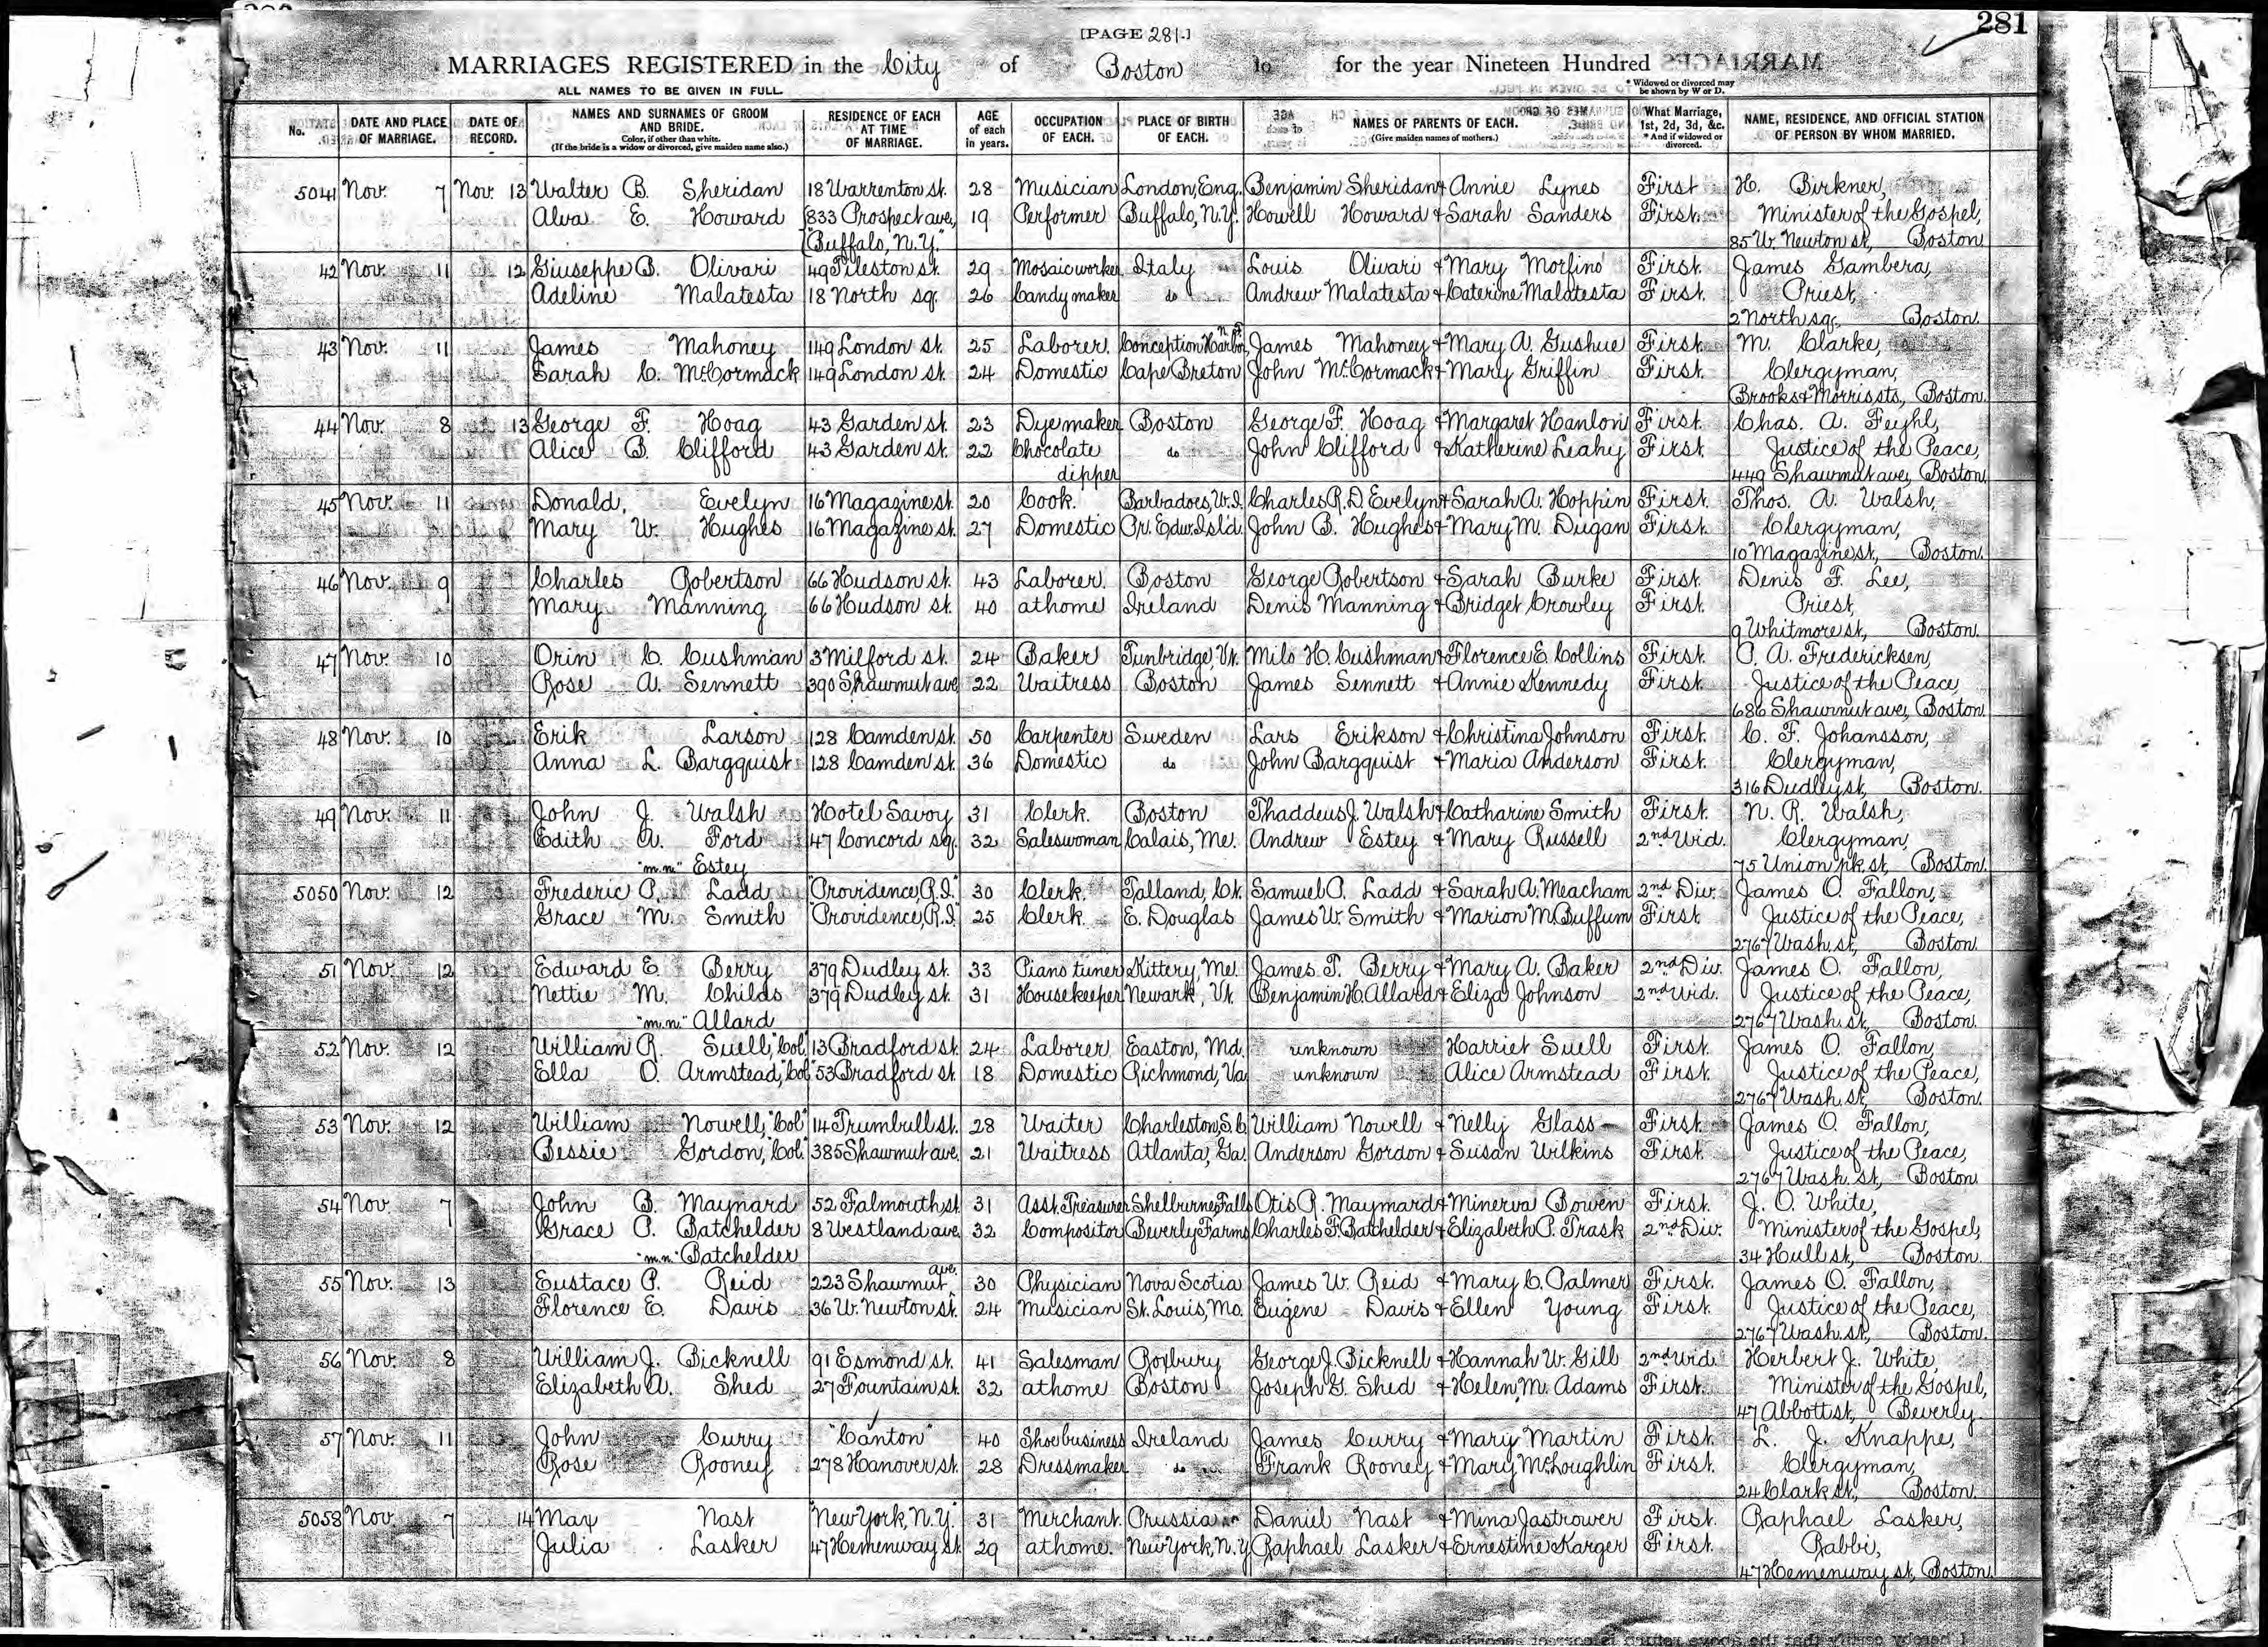 281
[PAGE 281.]
MARRIAGES REGISTERED in the City of Boston for the year Nineteen Hundred
ALL NAMES TO BE GIVEN IN FULL.
* Widowed or divorced may be shown by W or D.
No. DATE AND PLACE OF MARRIAGE. DATE OF RECORD. NAMES AND SURNAMES OF GROOM AND BRIDE. Color, if other than white. (If the bride is a widow or divorced, give maiden name also.) RESIDENCE OF EACH AT TIME OF MARRIAGE. AGE of each in years. OCCUPATION OF EACH. PLACE OF BIRTH OF EACH. NAMES OF PARENTS OF EACH. (Give maiden names of mothers.) What Marriage, 1st, 2d, 3d, &c. * And if widowed or divorced. NAME, RESIDENCE, AND OFFICIAL STATION OF PERSON BY WHOM MARRIED.
5041 Nov. 7 Nov. 13 Walter B. Sheridan 18 Warrenton st. 28 Musician London, Eng. Benjamin Sheridan & Annie Lynes First H. Birkner,
Alva E. Howard 833 Prospect ave, 19 Performer Buffalo, N.Y. Howell Howard & Sarah Sanders First. Minister of the Gospel,
"Buffalo, N.Y." 85 W. Newton st, Boston
42 Nov. 11 12 Giuseppe B. Olivari 49 Tileston st. 29 Mosaic worker Italy Louis Olivari & Mary Morfino First. James Gambera,
Adeline Malatesta 18 North sq. 26 Candy maker do Andrew Malatesta & Caterine Malatesta First. Priest,
2 North sq., Boston.
43 Nov. 11 James Mahoney 149 London st. 25 Laborer. Conception Harbor, N.F. James Mahoney & Mary A. Gushue First. M. Clarke,
Sarah C. McCormack 149 London st. 24 Domestic Cape Breton John McCormack & Mary Griffin First. Clergyman,
Brooks & Morris sts, Boston.
44 Nov. 8 13 George F. Hoag 43 Garden st. 23 Dyemaker Boston George F. Hoag & Margaret Hanlon First. Chas. A. Feyhl,
Alice B. Clifford 43 Garden st. 22 Chocolate do John Clifford & Katherine Leahy First. Justice of the Peace,
dipper 449 Shawmut ave, Boston
45 Nov. 11 Donald, Evelyn 16 Magazine st. 20 Cook. Barbadoes, W.I. Charles R. D. Evelyn & Sarah A. Hoppin First. Thos. A. Walsh,
Mary W. Hughes 16 Magazine st. 27 Domestic Pr. Edw. Isld. John B. Hughes & Mary M. Dugan First. Clergyman,
10 Magazine st, Boston.
46 Nov. 9 Charles Robertson 66 Hudson st. 43 Laborer. Boston George Robertson & Sarah Burke First. Denis F. Lee,
Mary Manning 66 Hudson st. 40 at home Ireland Denis Manning & Bridget Crowley First. Priest,
9 Whitmore st, Boston.
47 Nov. 10 Orin C. Cushman 3 Milford st. 24 Baker Tunbridge, Vt. Milo H. Cushman & Florence E. Collins First. P. A. Fredericksen,
Rose A. Sennett 390 Shawmut ave 22 Waitress Boston James Sennett & Annie Kennedy First. Justice of the Peace,
686 Shawmut ave, Boston.
48 Nov. 10 Erik Larson 128 Camden st. 50 Carpenter Sweden Lars Erikson & Christina Johnson First. C. F. Johansson,
Anna L. Bargquist 128 Camden st. 36 Domestic do John Bargquist & Maria Anderson First. Clergyman,
316 Dudley st, Boston.
49 Nov. 11 John J. Walsh Hotel Savoy 31 Clerk. Boston Thaddeus J. Walsh & Catharine Smith First. N. R. Walsh,
Edith A. Ford 47 Concord sq. 32 Saleswoman Calais, Me. Andrew Estey & Mary Russell 2nd Wid. Clergyman,
"m.n." Estey 75 Union pk. st, Boston.
5050 Nov. 12 Frederic P. Ladd "Providence, R.I." 30 Clerk. Talland, Ct. Samuel P. Ladd & Sarah A. Meacham 2nd Div. James O. Fallon,
Grace M. Smith "Providence, R.I." 25 Clerk E. Douglas James W. Smith & Marion M. Buffum First Justice of the Peace,
2767 Wash. st, Boston.
51 Nov. 12 Edward E. Berry 379 Dudley st. 33 Piano tuner Kittery, Me. James T. Berry & Mary A. Baker 2nd Div. James O. Fallon,
Nettie M. Childs 379 Dudley st. 31 Housekeeper Newark, Vt. Benjamin H. Allard & Eliza Johnson 2nd Wid. Justice of the Peace,
"m.n." Allard 2767 Wash. st, Boston.
52 Nov. 12 William R. Suell, "Col" 13 Bradford st. 24 Laborer Easton, Md. unknown Harriet Suell First. James O. Fallon,
Ella O. Armstead, "Col" 53 Bradford st. 18 Domestic Richmond, Va unknown Alice Armstead First. Justice of the Peace,
2767 Wash. st, Boston.
53 Nov. 12 William Nowell, "Col" 14 Trumbull st. 28 Waiter Charleston, S.C. William Nowell & Nelly Glass First. James O. Fallon,
Bessie Gordon, "Col." 385 Shawmut ave. 21 Waitress Atlanta, Ga. Anderson Gordon & Susan Wilkins First. Justice of the Peace,
2767 Wash. st, Boston
54 Nov. 7 John B. Maynard 52 Falmouth st. 31 Asst. Treasurer Shelburne Falls Otis R. Maynard & Minerva Bowen First. J. O. White,
Grace P. Batchelder 8 Westland ave. 32 Compositor Beverly Farms Charles F. Batchelder & Elizabeth P. Trask 2nd Div. Minister of the Gospel,
"m.n." Batchelder 34 Hull st, Boston.
55 Nov. 13 Eustace P. Reid 223 Shawmut ave. 30 Physician Nova Scotia James W. Reid & Mary C. Palmer First. James O. Fallon,
Florence E. Davis 36 W. Newton st. 24 Musician St. Louis, Mo. Eugene Davis & Ellen Young First. Justice of the Peace,
2767 Wash. st, Boston.
56 Nov. 8 William J. Bicknell 91 Esmond st. 41 Salesman Roxbury George J. Bicknell & Hannah W. Gill 2nd Wid. Herbert J. White,
Elizabeth A. Shed 27 Fountain st. 32 at home Boston Joseph G. Shed & Helen M. Adams First. Minister of the Gospel,
47 Abbott st, Beverly.
57 Nov. 11 John Curry "Canton" 40 Shoe business Ireland James Curry & Mary Martin First. L. J. Knappe,
Rose Rooney 278 Hanover st. 28 Dressmaker do Frank Rooney & Mary McLoughlin First. Clergyman,
24 Clark st, Boston.
5058 Nov. 7 14 Max Nast "New York, N.Y." 31 Merchant. Prussia Daniel Nast & Mina Jastrower First. Raphael Lasker,
Julia Lasker 47 Hemenway st. 29 at home. New York, N.Y. Raphael Lasker & Ernestine Karger First. Rabbi,
47 Hemenway st, Boston.